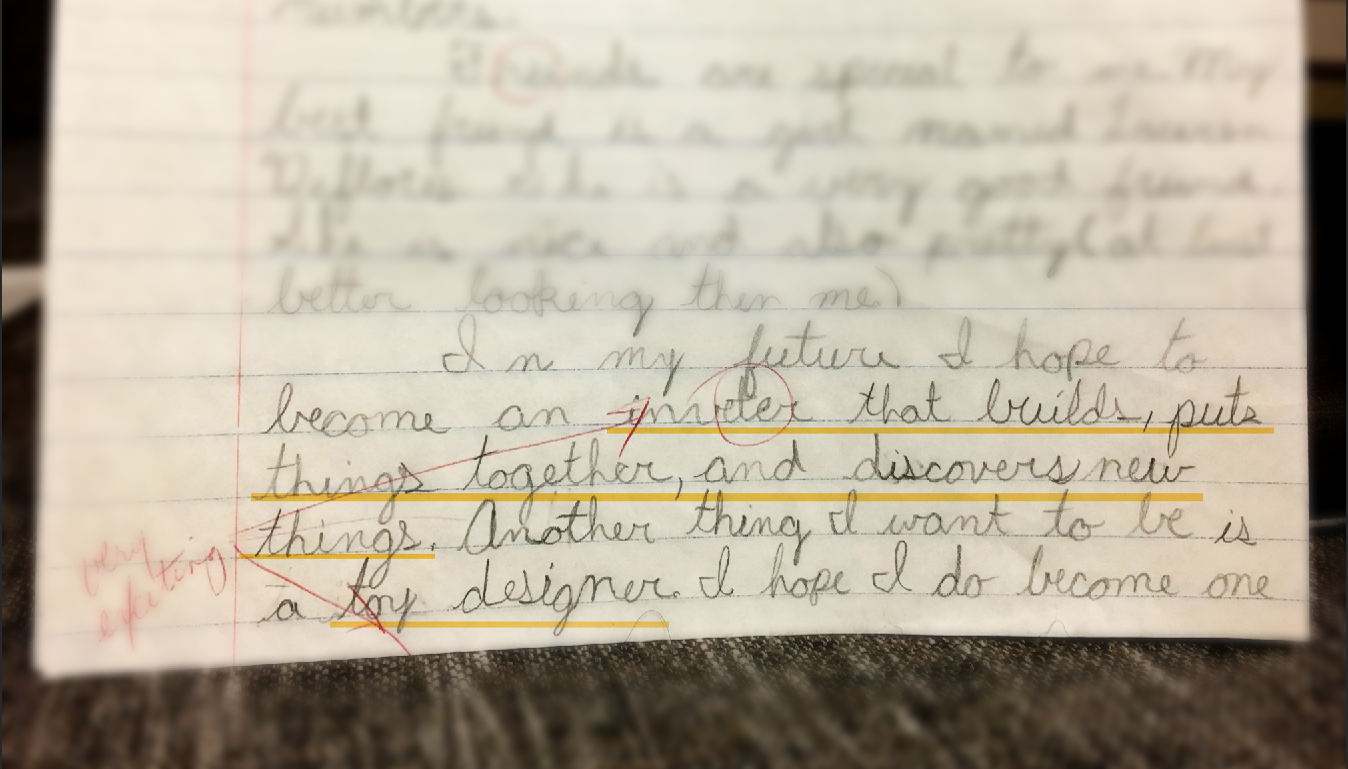 Friends are special to me. My
best friend is a girl named Lauren
She is a very good friend.
She is nice and also pretty (a lot
better looking then me)
In my future I hope to
become an inveter that builds, puts
things together, and discovers new
things. Another thing I want to be is
a toy designer. I hope I do become one
very
exciting